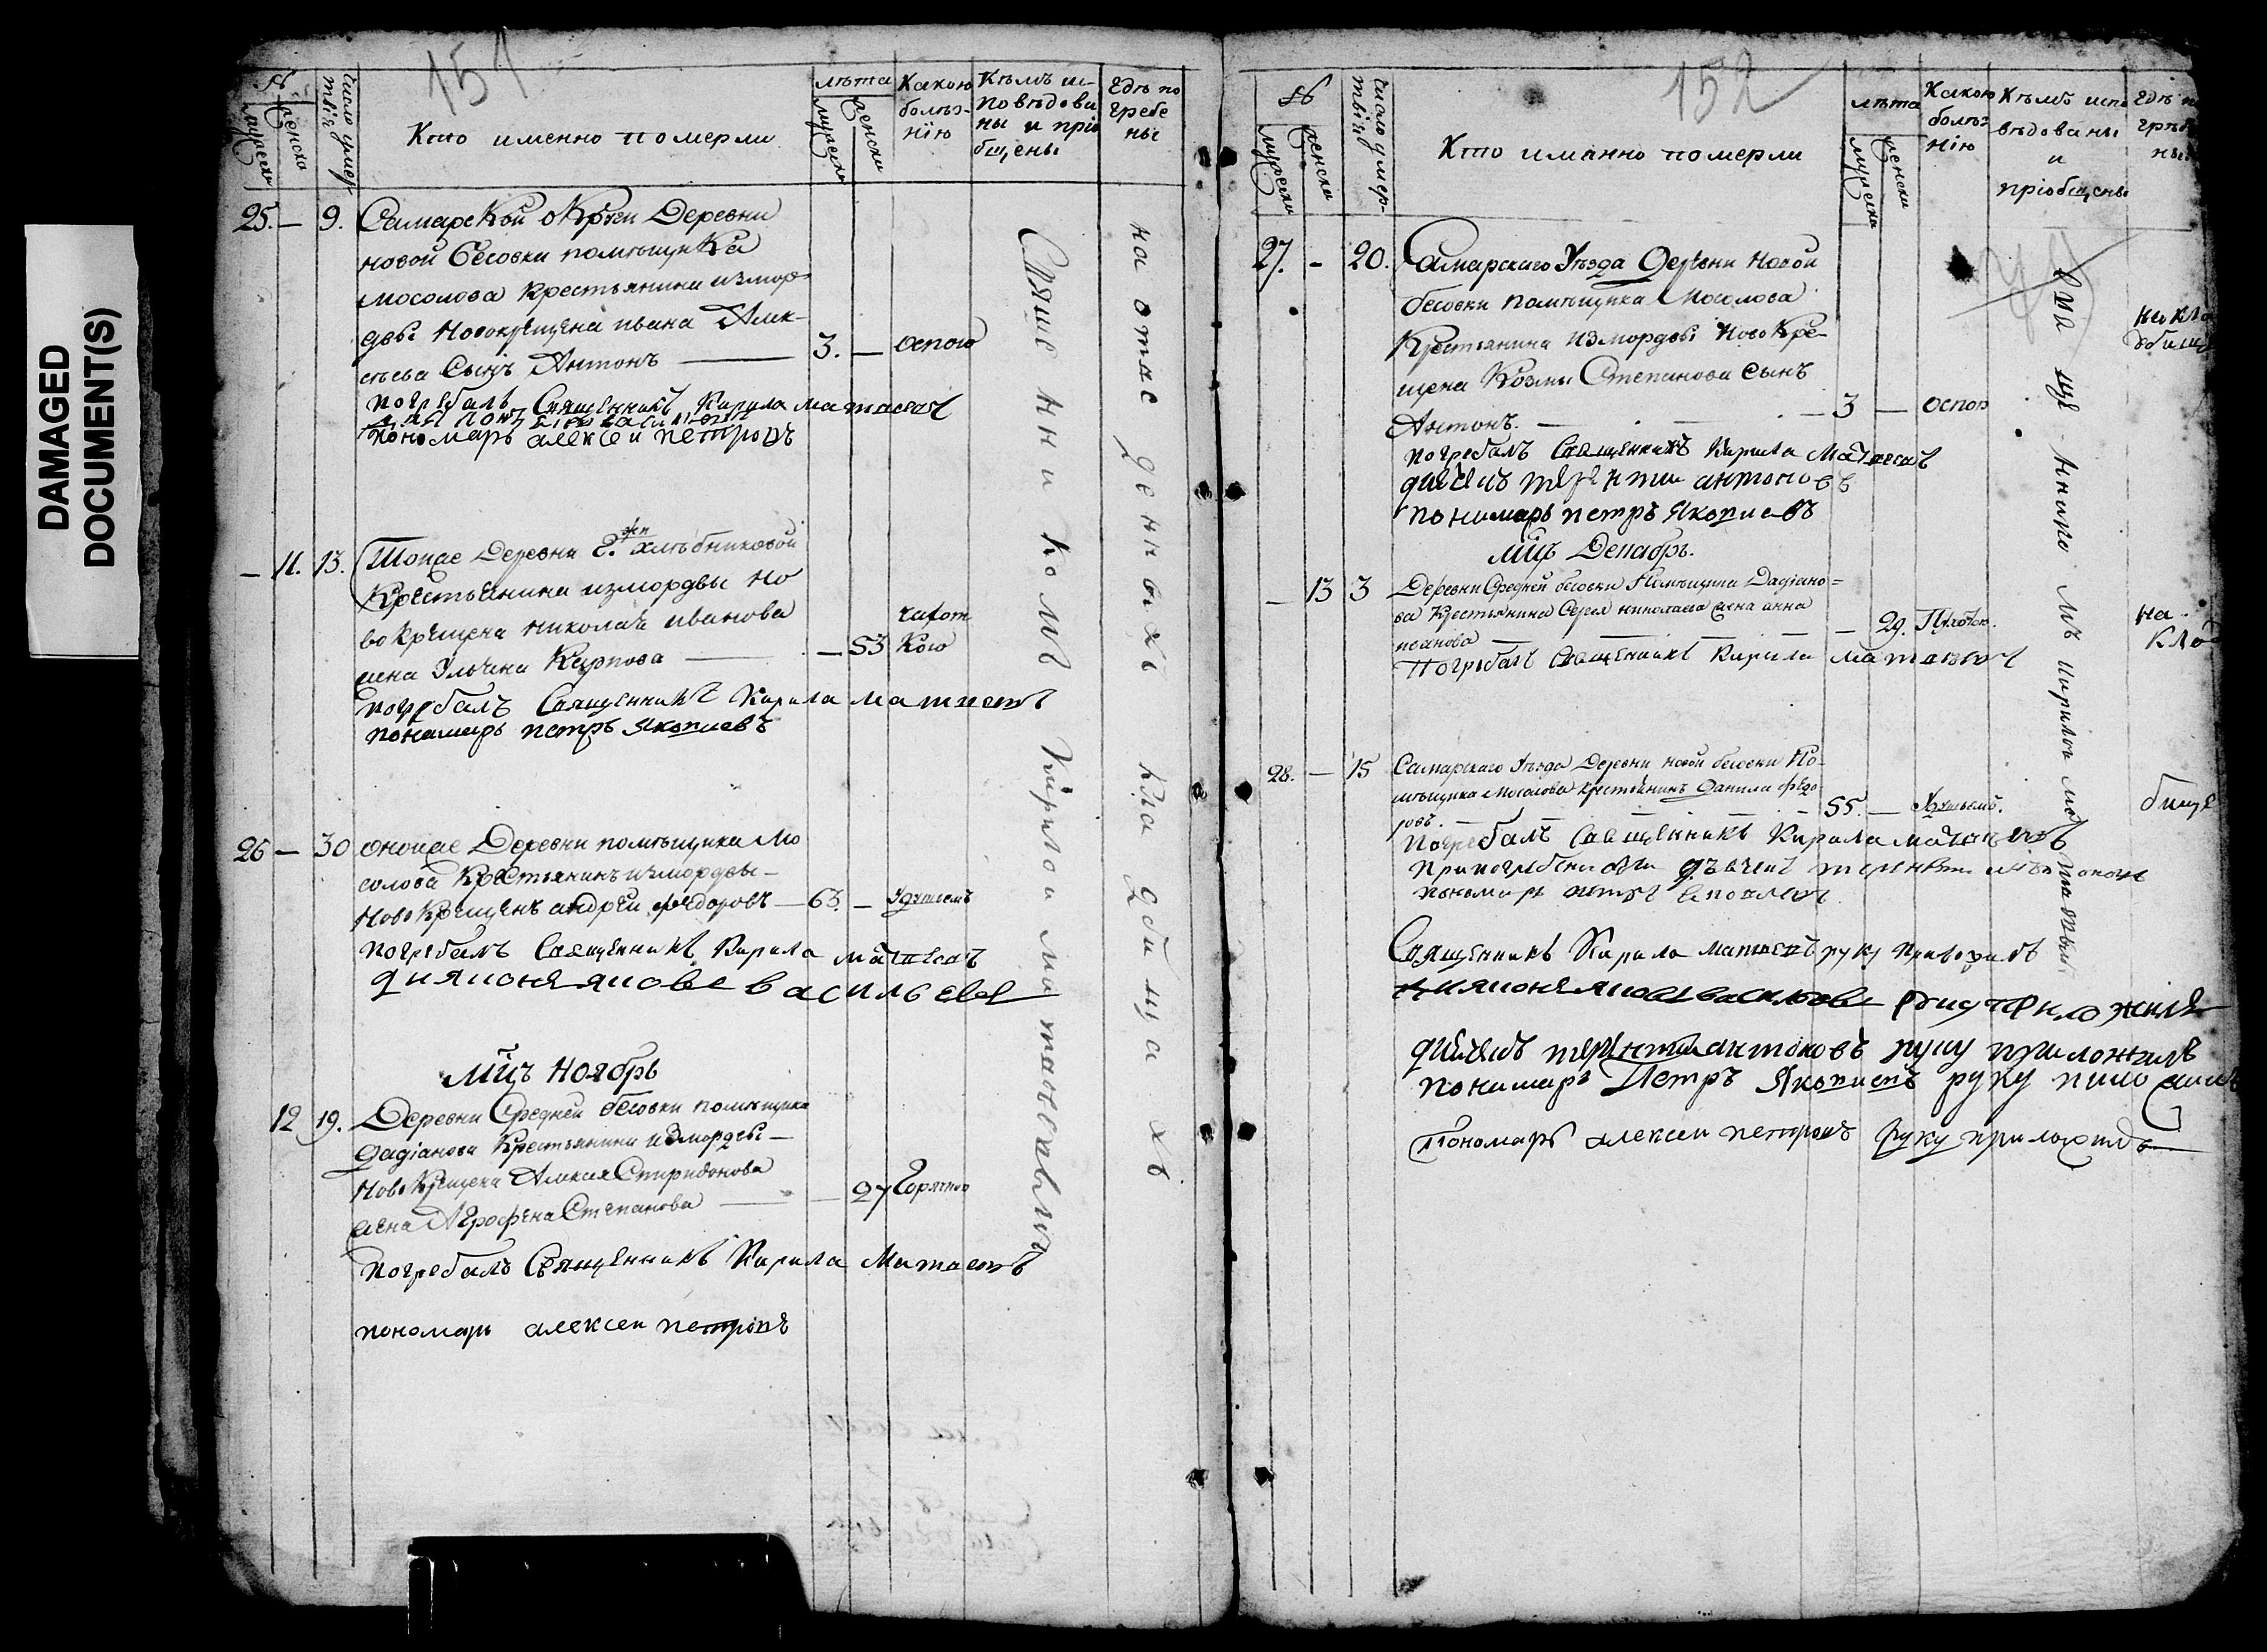 DAMAGED
DOCUMENT(S)
151
№
мужеска
женска
число умер
твія
Кто именно померли
лѣта
мужески
женски
Какою
болѣз-
нію
Кѣмъ ис-
повѣдова
ны и пріо
бщены
Гдѣ по
гребе
ны
25. — 9. Самарской округи Деревни
новой бесовки помѣщика
Мосолова крестьянина измор-
двы новокрещена ивана Алек-
сѣева Сынъ Антонъ — 3. — оспою
погребалъ Священникъ Кирила матвеевъ
пономарь алексеи петровъ
— 11. 13. Тоиже Деревни хлѣбниковой
Крестьянина измордвы но
вокрещена николая иванова
жена Ульяна Карпова — 53 чахот
кою
погребалъ Священникъ Кирила матвеевъ
понамарь петръ Яковлевъ
26 — 30 оноиже Деревни помѣщика Мо
солова Крестьянинъ измордвы —
новокрещенъ андреи федоровъ — 63. — Удушьемъ
погребалъ Священникъ Кирила матвеевъ
диякон яковъ васильевъ
мцъ ноябрь
12 19. Деревни Средней бесовки помѣщика
Дадіанова Крестьянина измордвы —
новокрещена Алексея Спиридонова
жена Агрофена Степанова — 27 Горячкою
погребалъ Священникъ Кирила Матвеевъ
пономарь алексеи петровъ
Священникомъ Кириломъ матвеевымъ
на отведенныхъ кладбищахъ
152
№
мужеска
женски
число умер-
твія
Кто иманно померли
лѣта
мужеска
женски
Какою
болѣз
нію
Кѣмъ испо
вѣдованы
и
пріобщены
Гдѣ по
гребе
ны
27. - 20. Самарскаго Уѣзда Деревни Новой
бесовки помѣщика Мосолова
Крестьянина измордвы новокре-
щена Козмы Степанова сынъ
Антонъ. — 3 — оспою
погребалъ Священникъ Кирила Матвеевъ
диячекъ терентии антоновъ
понамарь петръ Яковлевъ
мцъ Декабрь.
— 13 3 Деревни Средней бесовки Помѣщика Дадіано-
ва Крестьянина Сергея николаева жена анна
иванова — 29.
Погребалъ Священникъ Кирила матвеевъ
28. — 15 Самарскаго Уѣзда Деревни новой бесовки По-
мѣщика Мосолова крестьянинъ Данила федо-
ровъ. — 55. — Удушьемъ.
Погребалъ Священникъ Кирила матвеевъ
при погребени были дьячекъ терентеи антоновъ
пономарь петръ Яковлевъ
Священникъ Кирила матвеевъ руку приложилъ
диякон яковъ васильевъ руку приложилъ
диячекъ терентии антоновъ руку приложилъ
понамарь Петръ Яковлевъ руку приложилъ
Пономарь алексеи петровъ руку приложилъ
на кла
дбище
на
кла
бище